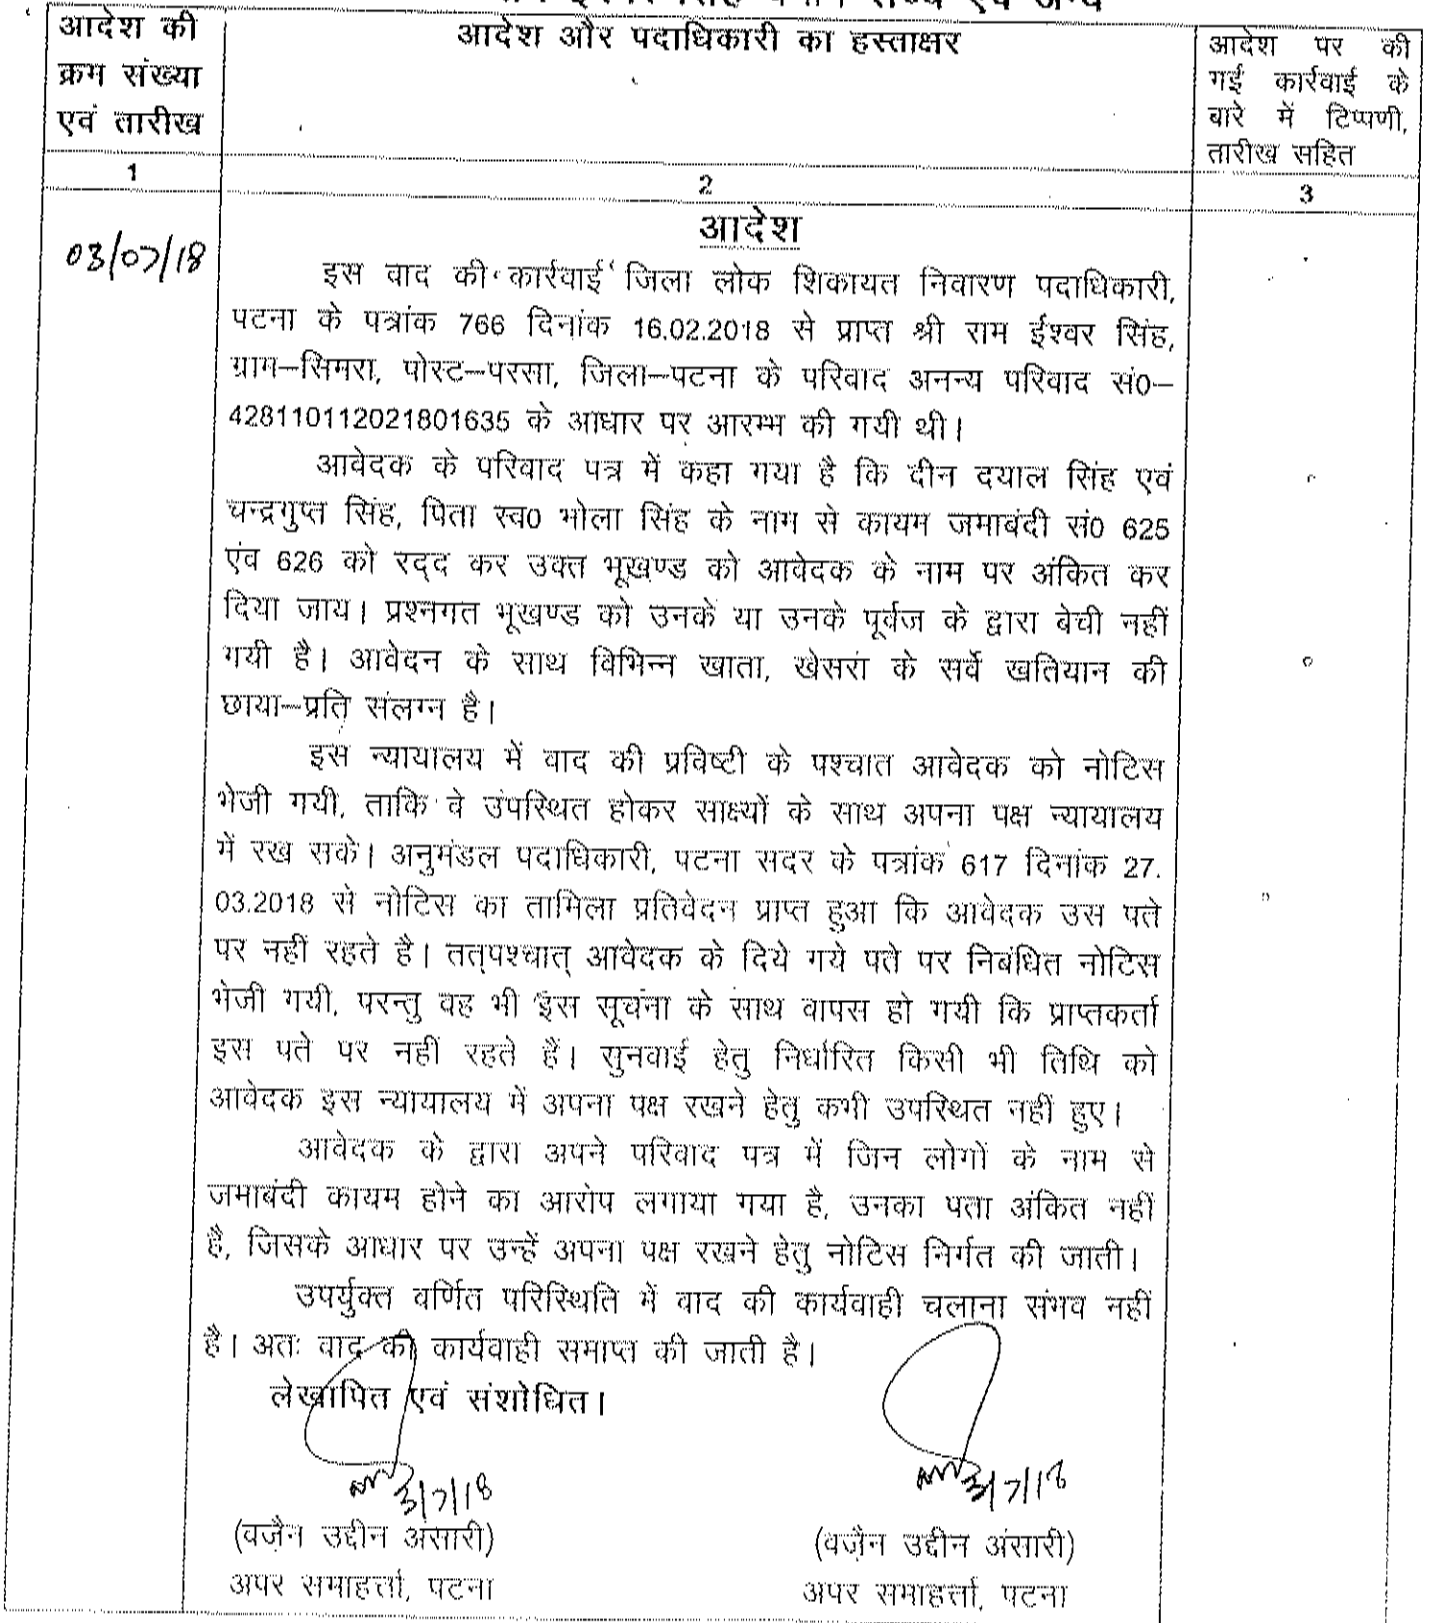 सिंह बनाम राज्य एवं अन्य
आदेश की
क्रम संख्या
एवं तारीख
आदेश और पदाधिकारी का हस्ताक्षर
आदेश पर की
गई कार्रवाई के
बारे में टिप्पणी,
तारीख सहित
1
2
3
03/07/18
आदेश
इस वाद की कार्रवाई जिला लोक शिकायत निवारण पदाधिकारी,
पटना के पत्रांक 766 दिनांक 16.02.2018 से प्राप्त श्री राम ईश्वर सिंह,
ग्राम–सिमरा, पोस्ट–परसा, जिला–पटना के परिवाद अनन्य परिवाद सं0–
428110112021801635 के आधार पर आरम्भ की गयी थी।
आवेदक के परिवाद पत्र में कहा गया है कि दीन दयाल सिंह एवं
चन्द्रगुप्त सिंह, पिता स्व0 भोला सिंह के नाम से कायम जमाबंदी सं0 625
एंव 626 को रद्द कर उक्त भूखण्ड को आवेदक के नाम पर अंकित कर
दिया जाय। प्रश्नगत भूखण्ड को उनके या उनके पूर्वज के द्वारा बेची नहीं
गयी है। आवेदन के साथ विभिन्न खाता, खेसरा के सर्वे खतियान की
छाया–प्रति संलग्न है।
इस न्यायालय में वाद की प्रविष्टी के पश्चात आवेदक को नोटिस
भेजी गयी, ताकि वे उपस्थित होकर साक्ष्यों के साथ अपना पक्ष न्यायालय
में रख सके। अनुमंडल पदाधिकारी, पटना सदर के पत्रांक 617 दिनांक 27.
03.2018 से नोटिस का तामिला प्रतिवेदन प्राप्त हुआ कि आवेदक उस पते
पर नहीं रहते है। तत्पश्चात् आवेदक के दिये गये पते पर निबंधित नोटिस
भेजी गयी, परन्तु वह भी इस सूचना के साथ वापस हो गयी कि प्राप्तकर्ता
इस पते पर नहीं रहते हैं। सुनवाई हेतु निर्धारित किसी भी तिथि को
आवेदक इस न्यायालय में अपना पक्ष रखने हेतु कभी उपस्थित नहीं हुए।
आवेदक के द्वारा अपने परिवाद पत्र में जिन लोगों के नाम से
जमाबंदी कायम होने का आरोप लगाया गया है, उनका पता अंकित नहीं
है, जिसके आधार पर उन्हें अपना पक्ष रखने हेतु नोटिस निर्गत की जाती।
उपर्युक्त वर्णित परिस्थिति में वाद की कार्यवाही चलाना संभव नहीं
है। अतः वाद की कार्यवाही समाप्त की जाती है।
लेखापित एवं संशोधित।
3/7/18
3/7/18
(वजैन उद्दीन अंसारी)
(वजैन उद्दीन अंसारी)
अपर समाहर्त्ता, पटना
अपर समाहर्त्ता, पटना